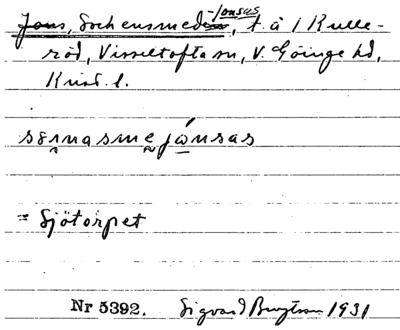 Jöns, Sockensmedens -Jonsas, t. å 1 Kulle-
röd, Visseltofta sn, V. Göinge hd,
Krist. l.
= Sjötorpet
Nr 5392. Sigvard Bengtsson 1931